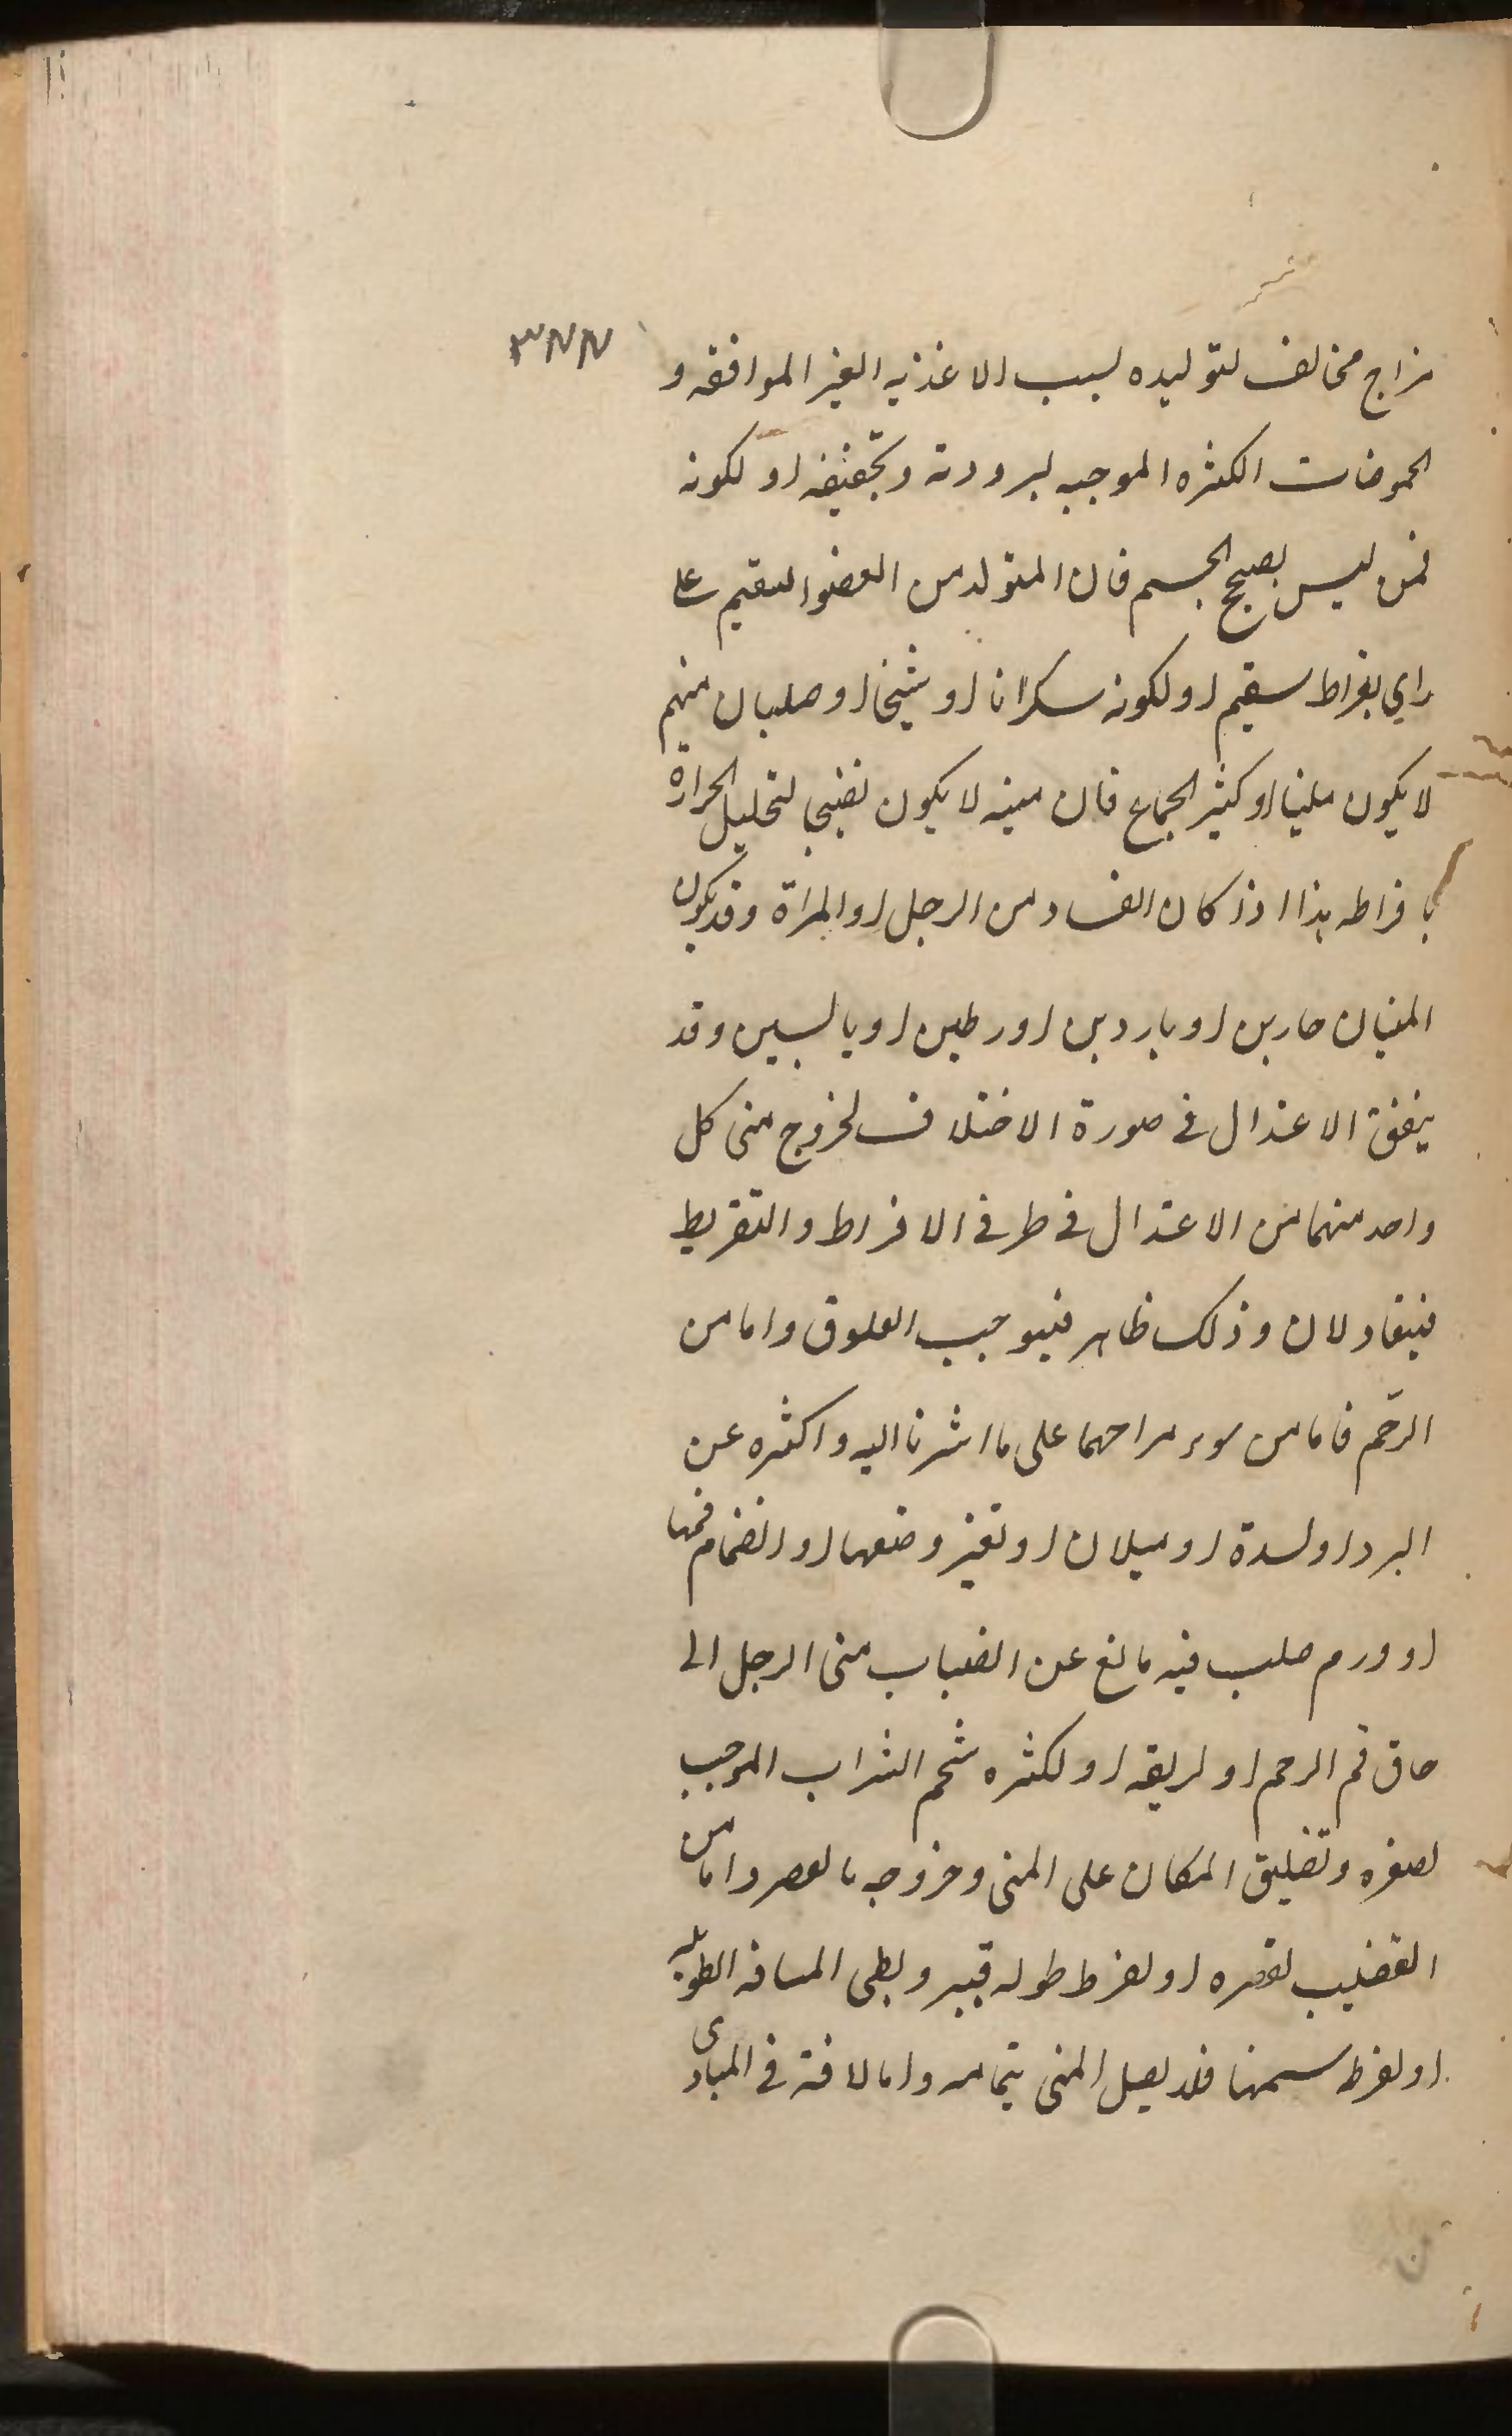 ٣٧٧
مزاج مخالف لتوليده لسبب الاغذيه الغير الموافقه و
الحموضات الكثره الموجبه لبرودته وتجفيفه او لكونه
فمن ليس بصحيح الجسم فان المتولد من العضو السقيم على
راي بقراط سقيم او لكونه سكرانا او شيخا او صلبا لان منهم
لا يكون منيا او كثير الجماع فان منيه لا يكون نضيجا لتحليل الحرارة
بافراطه هذا اذا كان الفساد من الرجل او المراة وقد يكون
المنيان حارين او باردين او رطبين او يابسين وقد
يتفق الاعتدال في صورة الاختلاف لخروج منى كل
واحد منهما من الاعتدال في طرفي الافراط والتفريط
فيتعادلان وذلك ظاهر فيوجب العلوق واما من
الرحم فاما من سوء مزاجها على ما اشرنا اليه واكثره عن
البرد او لسدة او ميلان او تغير وضعها او انضمام فمها
او ورم صلب فيه مانع عن انصباب منى الرجل الى
حاق فم الرحم او لريقه او لكثره شحم الثراب الموجب
لصغره وتضييق المكان على المنى وخروجه بالعصر واما من
القضيب لقصره او لفرط طوله فيبرد لطى المسافه الطويله
او لفرط سمنها فلا يصل المنى بتمامه واما لافة في المبادى